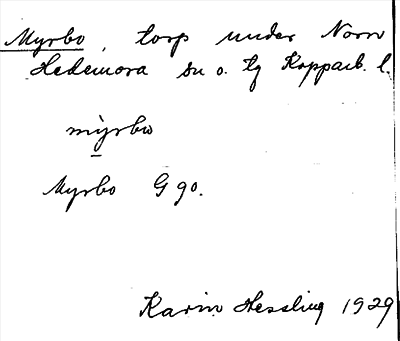 Myrbo, torp under Norn
Hedemora sn o. tg Kopparb. l.
mỳrbω
Myrbo G 90.
Karin Hessling 1929